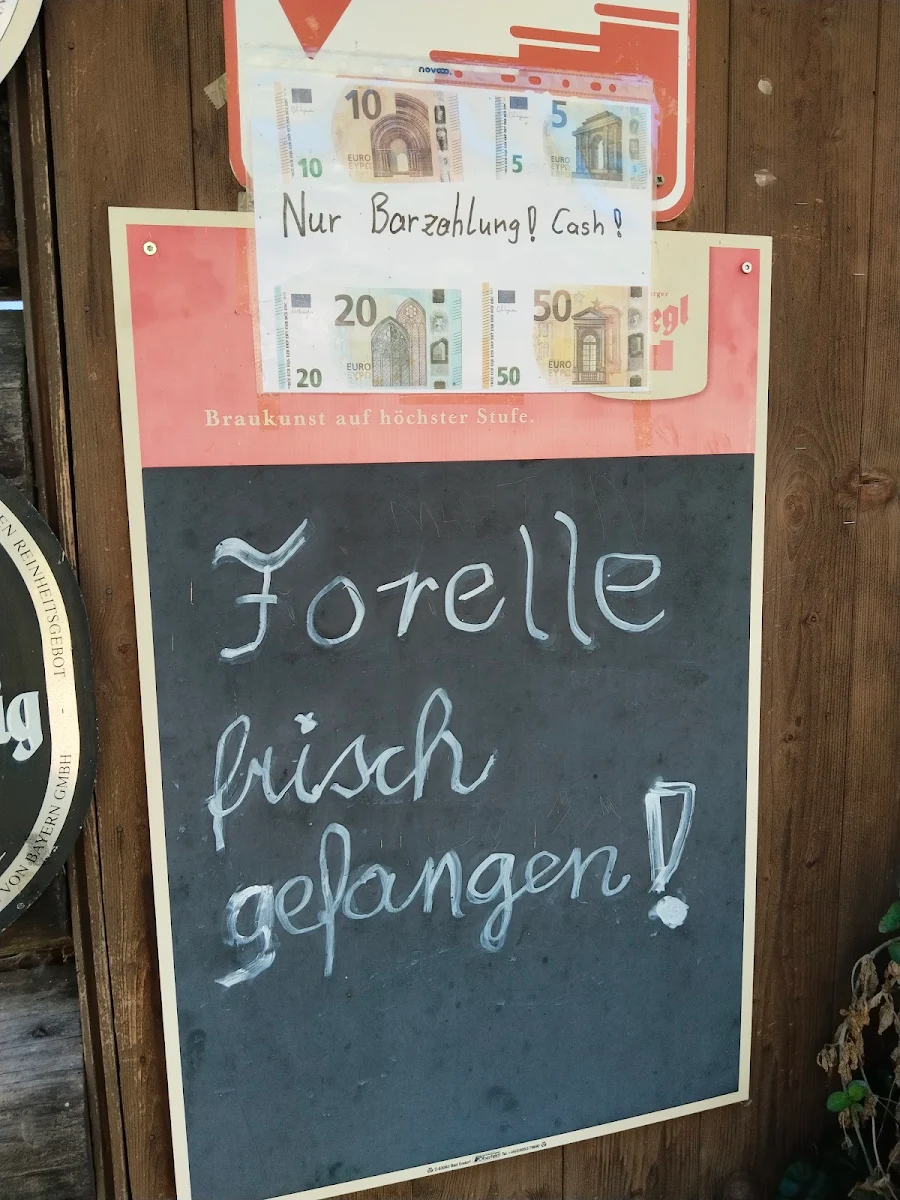 novooo.
10 EURO ΕΥΡΩ 10
5 EURO ΕΥΡΩ 5
Nur Barzahlung! Cash!
20 EURO ΕΥΡΩ 20
50 EURO ΕΥΡΩ 50
egl
Braukunst auf höchster Stufe.
Forelle
frisch
gefangen!
EN REINHEITSGEBOT -
ig
VON BAYERN GMBH